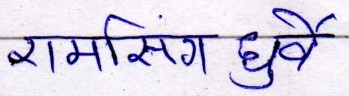 रामसिंग धुर्वे